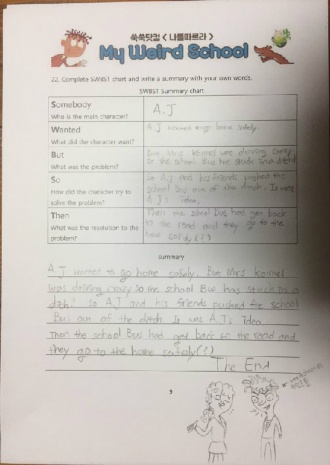 쑥쑥닷컴 <나를따르라>
My Weird School
22. Complete SWBST chart and write a summary with your own words.
SWBST Summary chart
Somebody
Who is the main character?
A.J
Wanted
What did the character want?
A.J wanted to go home safely.
But
What was the problem?
But Mrs kormel was driving crazy
so the school Bus has stuck in a ditch!
So
How did the character try to
solve the problem?
So A.J and his friends pushed the
school bus out of the ditch. It was
A.J's idea.
Then
What was the resolution to the
problem?
Then the school bus had get back
to the road and they go to the
home safely(?)
Summary
A.J wanted to go home safely. But Mrs kormel
was driving crazy so the school Bus has stuck in a
ditch! So A.J and his friends pushed the school
Bus out of the ditch. It was A.J's idea.
Then the school Bus had get back to the road and
they go to the home safely(?)
The End
9